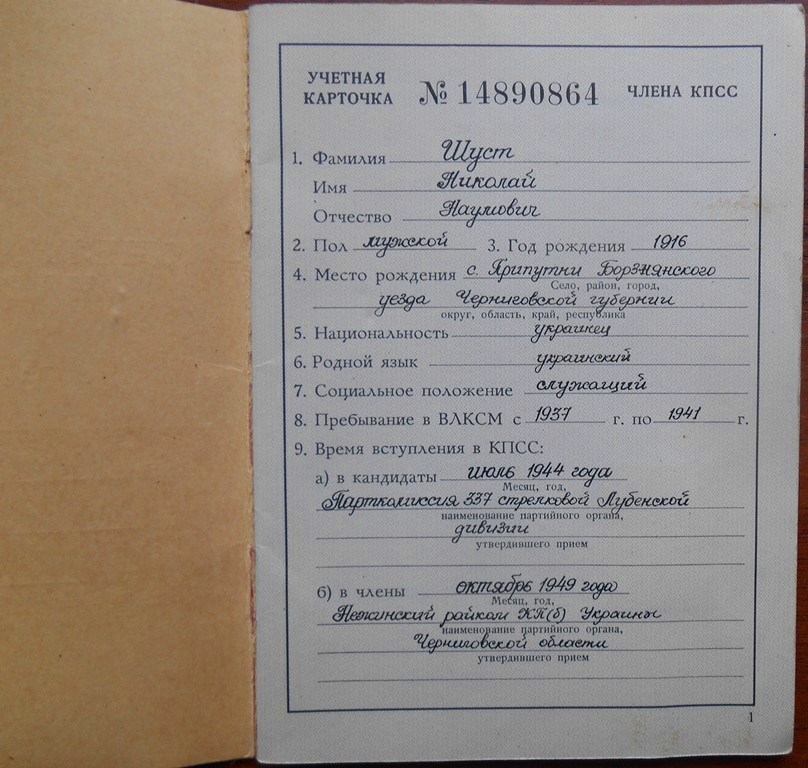 УЧЕТНАЯ КАРТОЧКА № 14890864 ЧЛЕНА КПСС
1. Фамилия Шуст
Имя Николай
Отчество Наумович
2. Пол мужской 3. Год рождения 1916
4. Место рождения с. Припутни Борзнянского
Село, район, город,
уезда Черниговской губернии
округ, область, край, республика
5. Национальность украинец
6. Родной язык украинский
7. Социальное положение служащий
8. Пребывание в ВЛКСМ с 1937 г. по 1941 г.
9. Время вступления в КПСС:
а) в кандидаты июль 1944 года
Месяц, год,
Парткомиссия 337 стрелковой Лубенской
наименование партийного органа,
дивизии
утвердившего прием
б) в члены октябрь 1949 года
Месяц, год,
Нежинский райком КП(б) Украины
наименование партийного органа,
Черниговской области
утвердившего прием
1